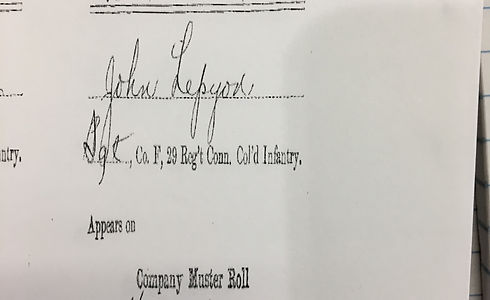 John Lepyon
Sgt, Co. F, 29 Reg't Conn. Col'd Infantry.
ntry,
Appears on
Company Muster Roll